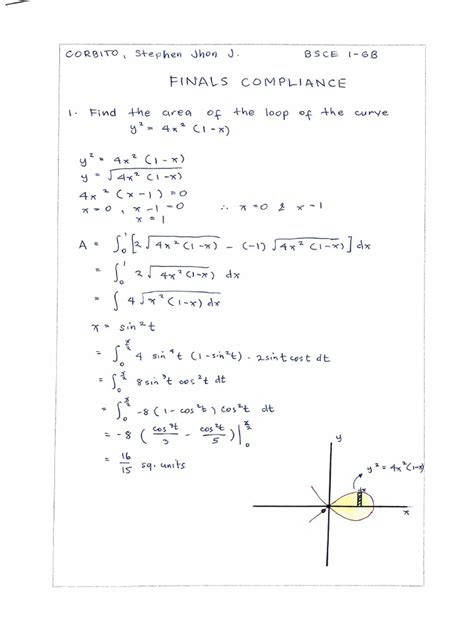 CORBITO, Stephen Jhon J. BSCE 1-GB
FINALS COMPLIANCE
1. Find the area of the loop of the curve
y² = 4x² (1-x)
y² = 4x² (1-x)
y = √4x² (1-x)
4x² (x-1) = 0
x = 0 , x-1 = 0 ∴ x=0 & x-1
x = 1
A = ∫₀¹ [2√4x²(1-x) - (-1) √4x²(1-x)] dx
= ∫₀¹ 2√4x²(1-x) dx
= ∫ 4√x²(1-x) dx
x = sin²t
= ∫₀^(π/2) 4 sin⁴t (1-sin²t) · 2sint cost dt
= ∫₀^(π/2) 8 sin³t cos²t dt
= ∫₀^(π/2) -8 (1-cos²t) cos²t dt
= -8 (cos³t/3 - cos⁵t/5)|₀^(π/2)
= 16/15 sq. units
y
y² = 4x²(1-x)
dx
x